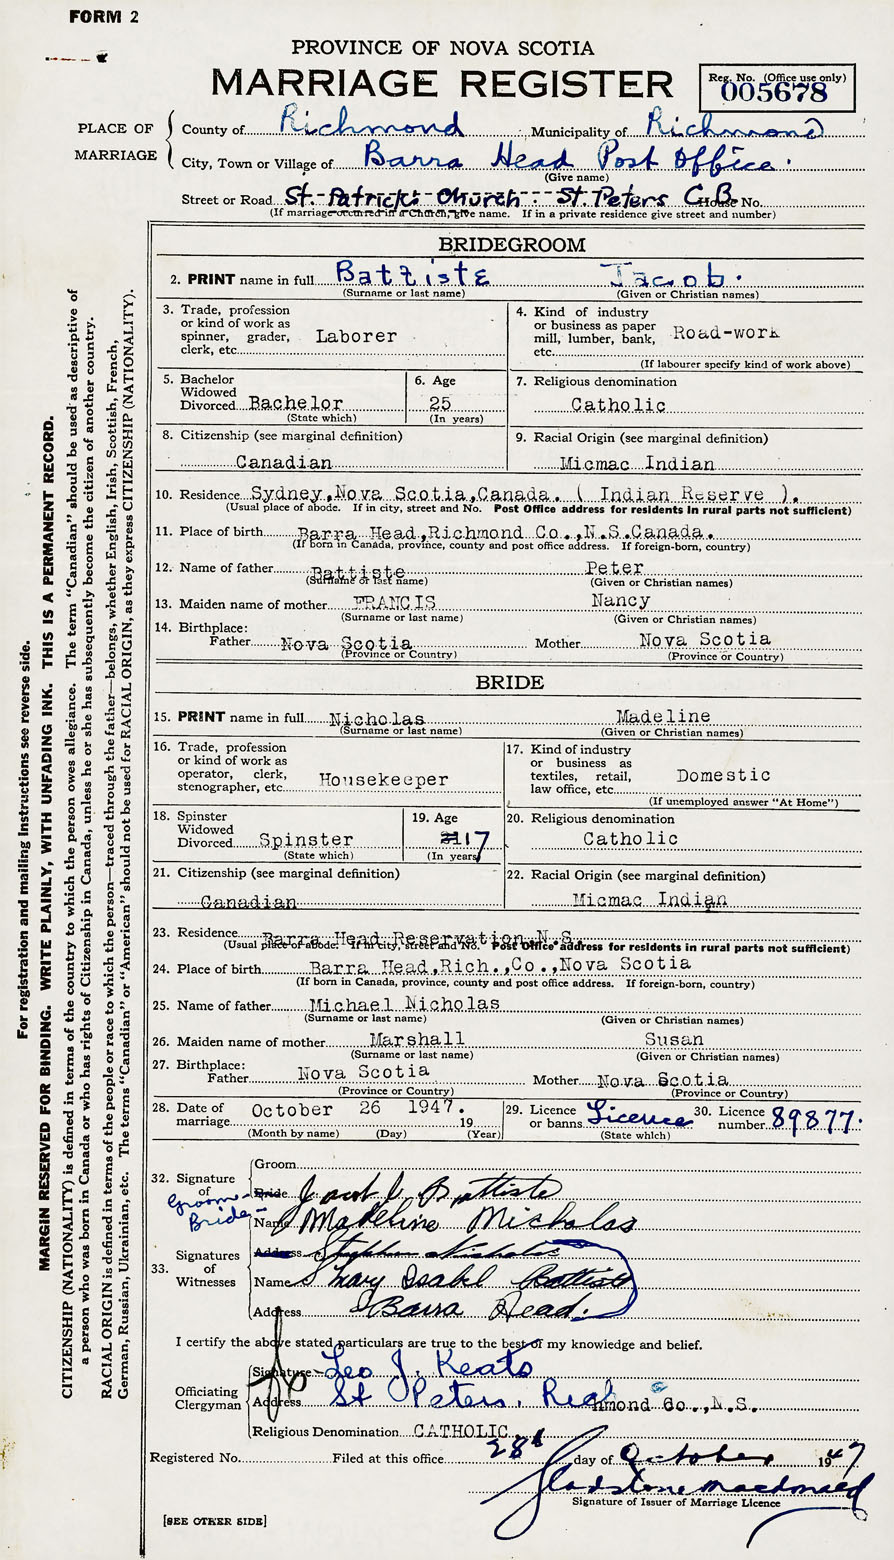 FORM 2
PROVINCE OF NOVA SCOTIA
MARRIAGE REGISTER
Reg. No. (Office use only)
005678
PLACE OF MARRIAGE
County of Richmond Municipality of Richmond
City, Town or Village of Barra Head Post Office.
(Give name)
Street or Road St. Patrick's Church - St. Peters C.B. House No.
(If marriage occurred in a Church, give name. If in a private residence give street and number)
BRIDEGROOM
2. PRINT name in full Battiste Jacob.
(Surname or last name) (Given or Christian names)
3. Trade, profession or kind of work as spinner, grader, clerk, etc. Laborer
4. Kind of industry or business as paper mill, lumber, bank, etc. Road-work
(If labourer specify kind of work above)
5. Bachelor Widowed Divorced Bachelor
(State which)
6. Age 25
(In years)
7. Religious denomination
Catholic
8. Citizenship (see marginal definition)
Canadian
9. Racial Origin (see marginal definition)
Micmac Indian
10. Residence Sydney,Nova Scotia,Canada. ( Indian Reserve ).
(Usual place of abode. If in city, street and No. Post Office address for residents in rural parts not sufficient)
11. Place of birth Barra Head,Richmond Co.,N.S.Canada.
(If born in Canada, province, county and post office address. If foreign-born, country)
12. Name of father Battiste Peter
(Surname or last name) (Given or Christian names)
13. Maiden name of mother FRANCIS Nancy
(Surname or last name) (Given or Christian names)
14. Birthplace:
Father Nova Scotia Mother Nova Scotia
(Province or Country) (Province or Country)
BRIDE
15. PRINT name in full Nicholas Madeline
(Surname or last name) (Given or Christian names)
16. Trade, profession or kind of work as operator, clerk, stenographer, etc. Housekeeper
17. Kind of industry or business as textiles, retail, law office, etc. Domestic
(If unemployed answer "At Home")
18. Spinster Widowed Divorced Spinster
(State which)
19. Age 21 17
(In years)
20. Religious denomination
Catholic
21. Citizenship (see marginal definition)
Canadian
22. Racial Origin (see marginal definition)
Micmac Indian
23. Residence Barra Head Reservation,N.S.
(Usual place of abode. If in city, street and No. Post Office address for residents in rural parts not sufficient)
24. Place of birth Barra Head,Rich.,Co.,Nova Scotia
(If born in Canada, province, county and post office address. If foreign-born, country)
25. Name of father Michael Nicholas
(Surname or last name) (Given or Christian names)
26. Maiden name of mother Marshall Susan
(Surname or last name) (Given or Christian names)
27. Birthplace:
Father Nova Scotia Mother Nova Scotia
(Province or Country) (Province or Country)
28. Date of marriage October 26 1947. 19
(Month by name) (Day) (Year)
29. Licence or banns Licence
(State which)
30. Licence number 89877.
32. Signature of
Groom
Bride Jacob Battiste
Groom-
Bride-
Name Madeline Nicholas
33. Signatures of Witnesses
Address Stephen Nicholas
Name Mary Isabel Battiste
Address Barra Head.
I certify the above stated particulars are true to the best of my knowledge and belief.
Officiating Clergyman
Signature Leo J. Keats
Address St Peters, Richmond Co.,N.S.
Religious Denomination CATHOLIC.
Registered No. Filed at this office 28th day of October 1947
Gladstone Macdonald
Signature of Issuer of Marriage Licence
[SEE OTHER SIDE]
For registration and mailing instructions see reverse side.
MARGIN RESERVED FOR BINDING. WRITE PLAINLY, WITH UNFADING INK. THIS IS A PERMANENT RECORD.
CITIZENSHIP (NATIONALITY) is defined in terms of the country to which the person owes allegiance. The term "Canadian" should be used as descriptive of
a person who was born in Canada or who has rights of Citizenship in Canada, unless he or she has subsequently become the citizen of another country.
RACIAL ORIGIN is defined in terms of the people or race to which the person—traced through the father—belongs, whether English, Irish, Scottish, French,
German, Russian, Ukrainian, etc. The terms "Canadian" or "American" should not be used for RACIAL ORIGIN, as they express CITIZENSHIP (NATIONALITY).